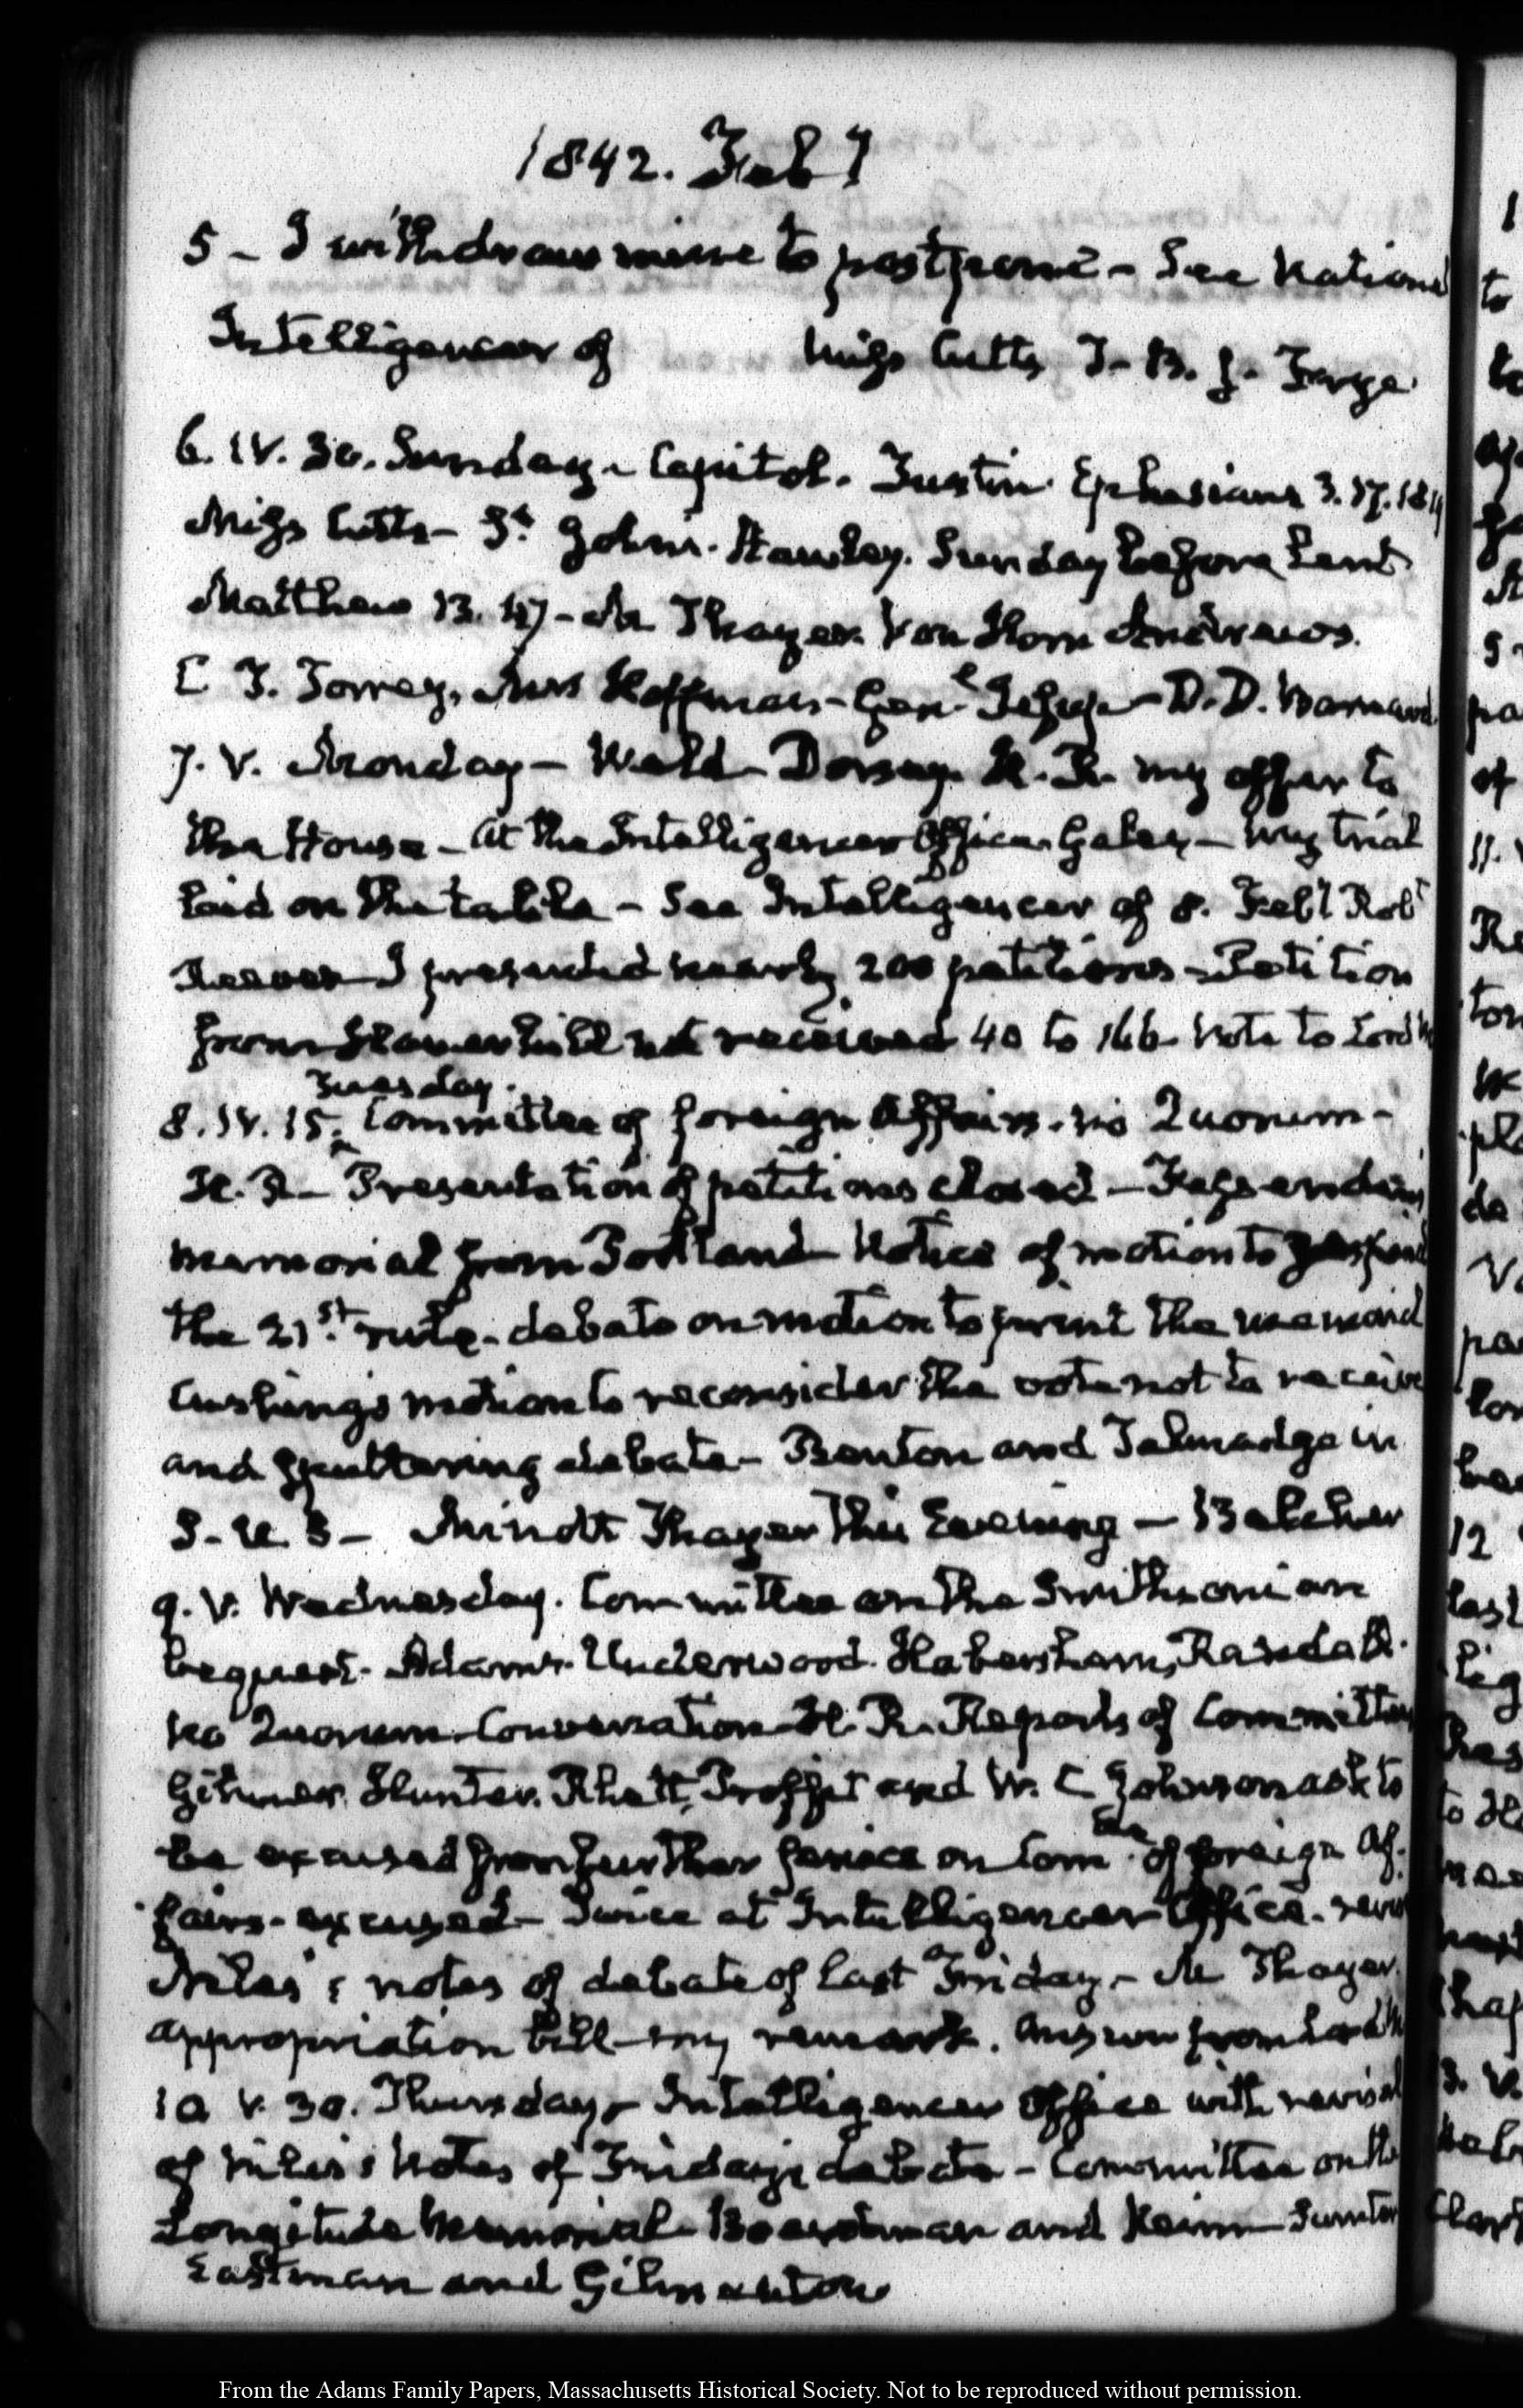 1842. Feb.y
5 - I withdraw mine to postpone - See National
Intelligencer of Miss Cutts T. B. J. Frye
6. IV. 30. Sunday - Capitol. Tustin Ephesians 3. 17. 18. 19
Miss Cutts - St. John's. Hawley. Sunday before Lent
Matthew 13. 47 - Mr Thayer. Van Horn Andrews.
C. T. Torrey, Mrs Hoffman - Genl. Jesup - D. D. Barnard.
7. V. Monday - Weld - Dorsey. H. R. my offer to
the House - At the Intelligencer Office. Gales - My trial
laid on the table - See Intelligencer of 8. Feb.y Rob.t
I presented nearly 200 petitions - Petition
from Haverhill not received 40 to 166. Note to Lord M
Tuesday.
8. IV. 15. Committee of foreign Affairs. no Quorum -
H. R. - Presentation of petitions closed - Fessenden's
memorial from Portland - Notice of motion to suspend
the 21st. rule - debate on motion to print the memorial
Cushing's motion to reconsider the vote not to receive
and sputtering debate - Benton and Talmadge in
S. U. S - Mindt Thayer this Evening - Belcher
9. V. Wednesday. Committee on the Smithsonian
bequest. Adams. Underwood. Habersham, Randall.
No Quorum. Conversation - H. R. Reports of Committees
Gilmer. Hunter. Rhett, Proffit and W. C. Johnson ask to
be excused from further service on Comtee. of foreign Af-
fairs - excused - Twice at Intelligencer Office. revise
Niles's notes of debate of last Friday - Mr Thayer.
appropriation bill - my remark. Answer from Lord M
10 V. 30. Thursday - Intelligencer Office with revisal
of Niles's Notes of Friday's debate - Committee on the
Longitude Memorial - Boardman and Keim - Sumter
Eastman and Gilmanton
From the Adams Family Papers, Massachusetts Historical Society. Not to be reproduced without permission.